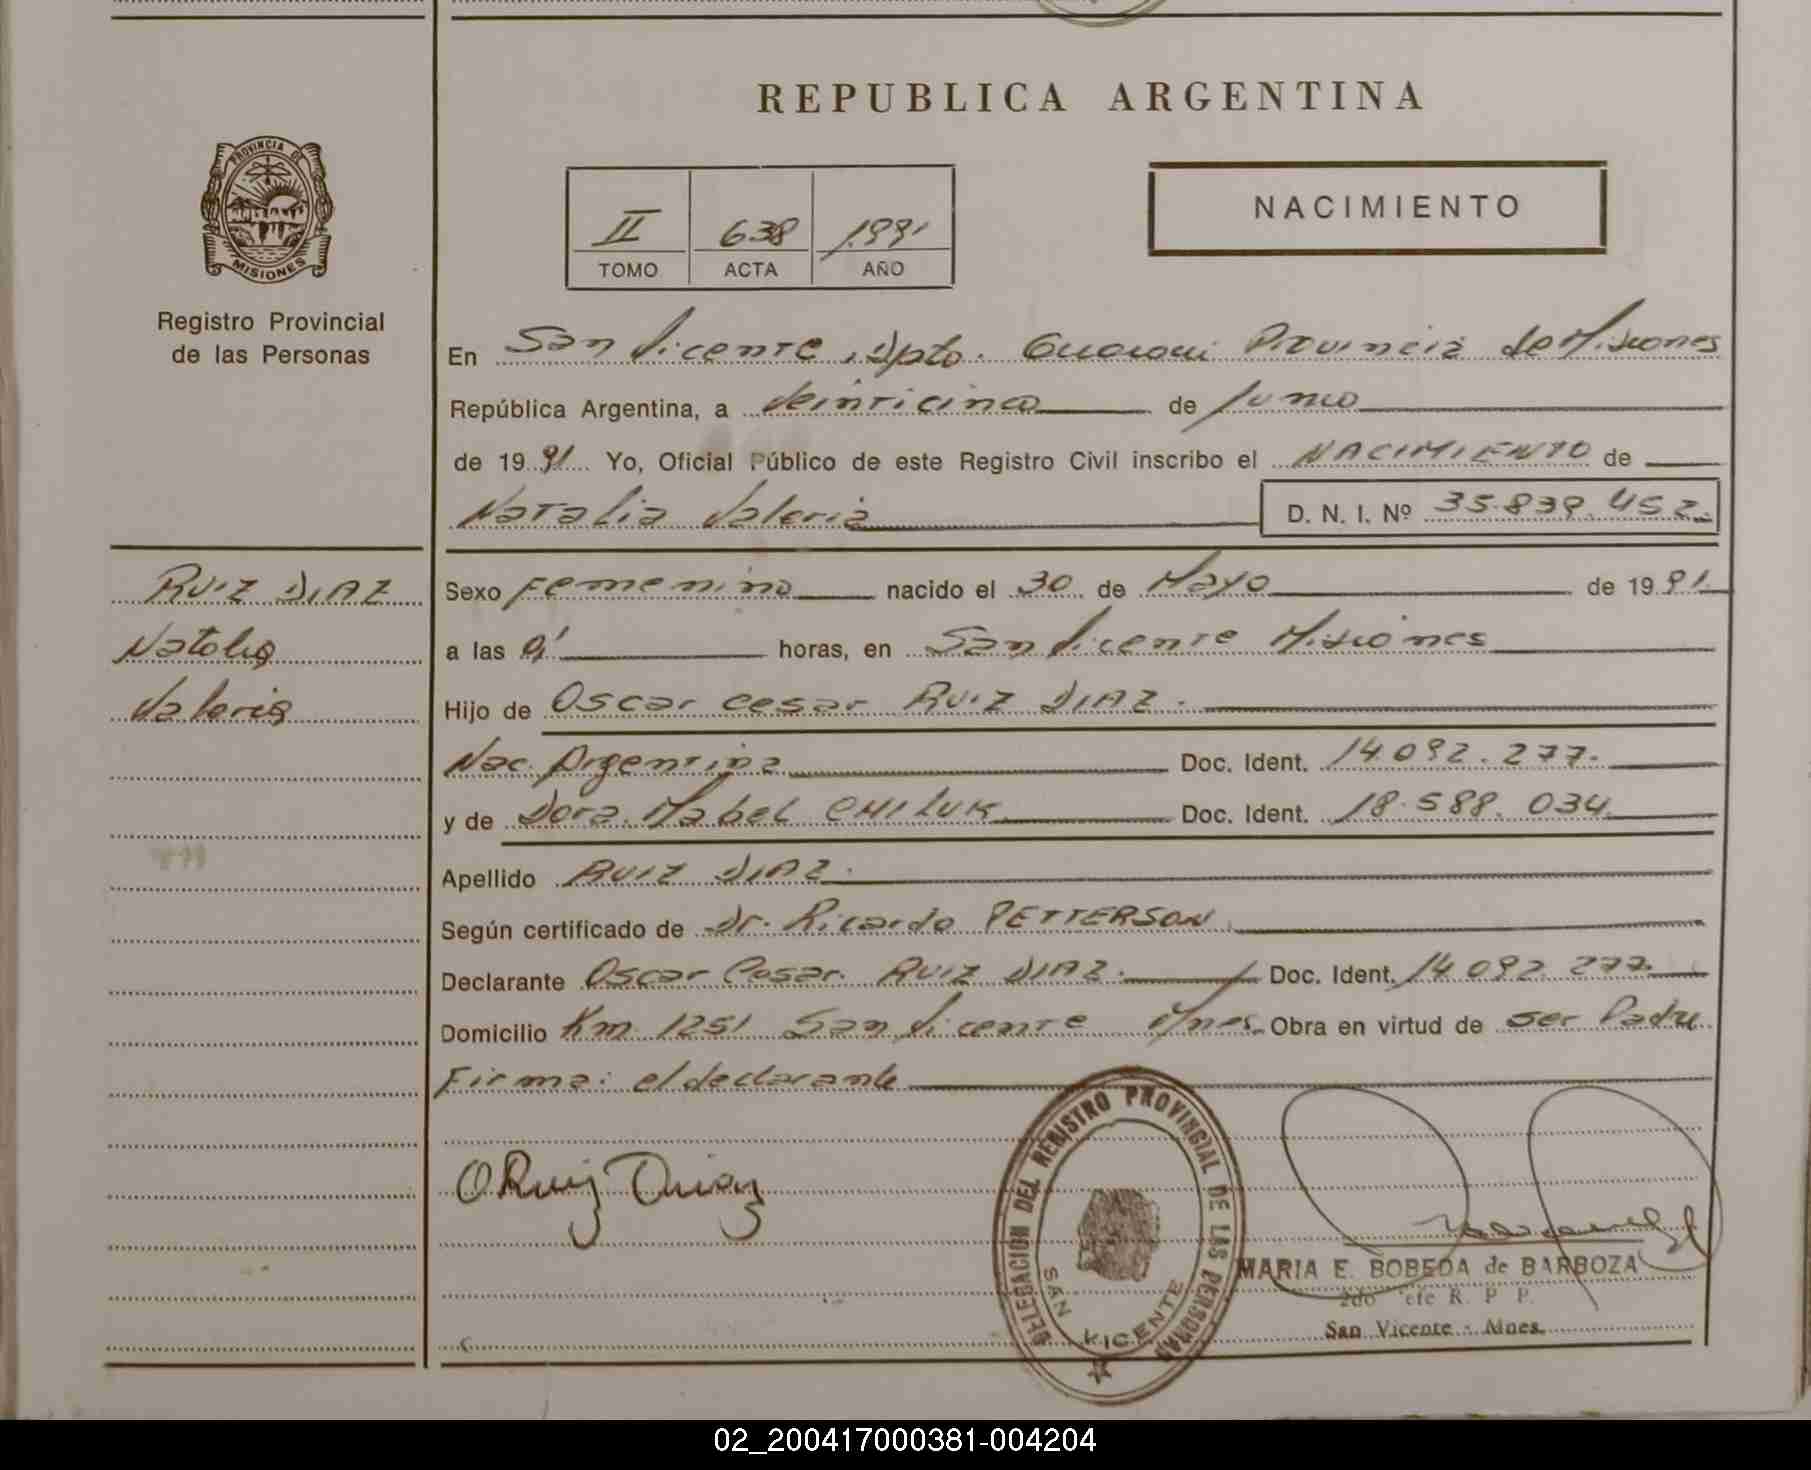 REPUBLICA ARGENTINA
PROVINCIA DE
MISIONES
Registro Provincial
de las Personas
II 638 1991
TOMO ACTA AÑO
NACIMIENTO
En San Vicente, Dpto. Guarani Provincia de Misiones
República Argentina, a Veinticinco de Junio
de 1991 Yo, Oficial Público de este Registro Civil inscribo el NACIMIENTO de
Natalia Valeria D. N. I. Nº 35.839.452.
RUIZ DIAZ
Natalia
Valeria
Sexo Femenino nacido el 30 de Mayo de 1991
a las horas, en San Vicente Misiones
Hijo de Oscar Cesar RUIZ DIAZ.
Nac. Argentina Doc. Ident. 14.092.277.
y de Dora Mabel CHILUK Doc. Ident. 18.588.034
Apellido RUIZ DIAZ.
Según certificado de Dr. Ricardo PETTERSON
Declarante Oscar Cesar RUIZ DIAZ. Doc. Ident. 14.092.277.
Domicilio Km. 1251 San Vicente Mnes. Obra en virtud de ser Padre
Firma: el declarante
O Ruiz Diaz
DELEGACION DEL REGISTRO PROVINCIAL DE LAS PERSONAS
SAN VICENTE
MARIA E. BOBEDA de BARBOZA
2do R. P. P.
San Vicente - Mnes.
02_200417000381-004204